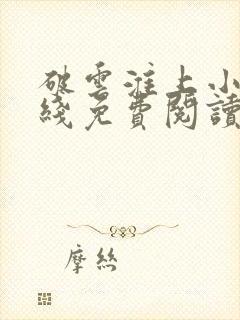 破雲淮上小
綫免費閱讀
摩絲